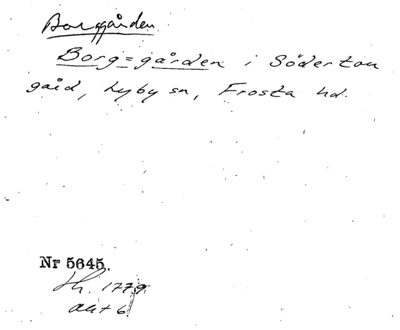 Borggården
Borg=gården i Södertou
gård, Lyby sn, Frosta hd.
Nr 5645.
Hs. 1779
akt 6